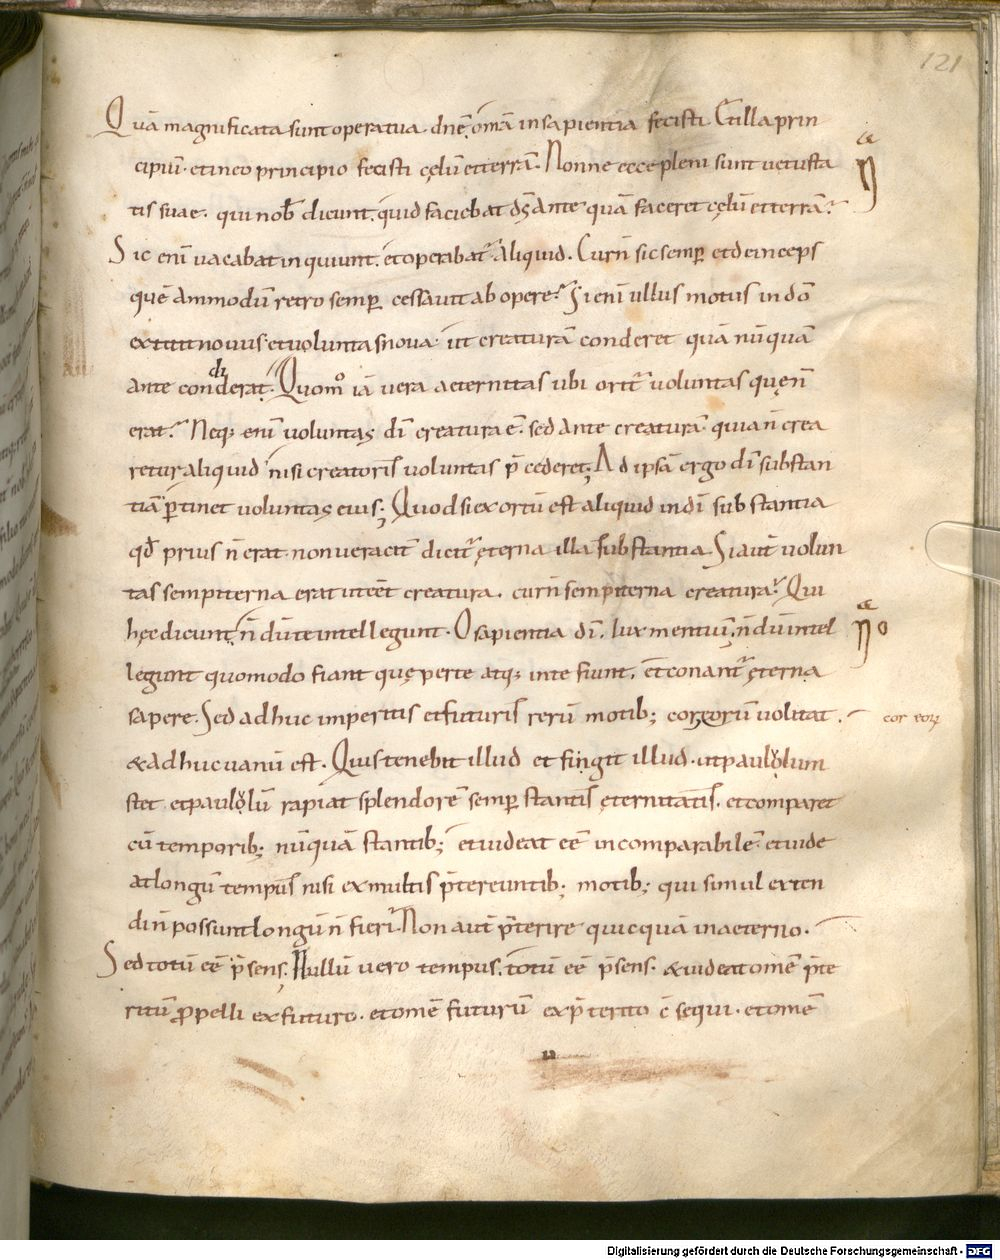 121
Quā magnificata sunt opera tua. dn̄e. om̄a in sapientia fecisti. Et illa prin
cipiū. et in eo principio fecisti cęlū et terrā. Nonne ecce pleni sunt uetusta
tis suae. qui nob̄ dicunt. quid faciebat d̄s ante quā faceret cęlū et terrā?
Sic enī uacabat inquiunt. et operabat̄ aliquid. Cur n̄ sic semp̄ et deinceps
quē ammodū retro semp̄ cessauit ab opere? Si enī ullus motus in dō
extitit nouus et uoluntas noua. ut creaturā conderet quā nūquā
ante condiderat. Quom̊ iā uera aeternitas ubi orit̄ uoluntas quę n̄
erat? Neq; enī uoluntas dī creatura ē. sed ante creaturā. quia n̄ crea
retur aliquid nisi creatoris uoluntas p̄cederet; Ad ipsā ergo dī substan
tiā p̄tinet uoluntas eius; Quod si exortū est aliquid in dī substantia
qđ prius n̄ erat. non ueracit̄ dicit̄ ęterna illa substantia. Si aut̄ uolun
tas sempiterna erat ut eēt creatura. cur n̄ sempiterna creatura? Qui
hęc dicunt. n̄dū te intellegunt. O sapientia dī. lux mentiū. n̄dū intel
legunt quomodo fiant quę per te atq; in te fiunt. et conant̄ ęterna
sapere. Sed adhuc in p̄teritis et futuris rerū motib; cor eorū uolitat.
cor eoꝝ
& adhuc uanū est. Quis tenebit illud et figit illud. ut paululum
stet et paululū rapiat splendorē semp̄ stantis ęternitatis. et comparet
cū temporib; nūquā stantib; et uideat eē incomparabilē. et uide
at longū tempus nisi ex multis p̄tereuntib; motib; qui simul exten
di n̄ possunt longū n̄ fieri. Non aut̄ p̄terire quicquā in aeterno.
Sed totū eē p̄sens. Nullū uero tempus. totū eē p̄sens. & uideat omē p̄te
ritū ꝓpelli ex futuro. et omē futurū ex p̄terito c̄sequi. et omē
Digitalisierung gefördert durch die Deutsche Forschungsgemeinschaft - DFG